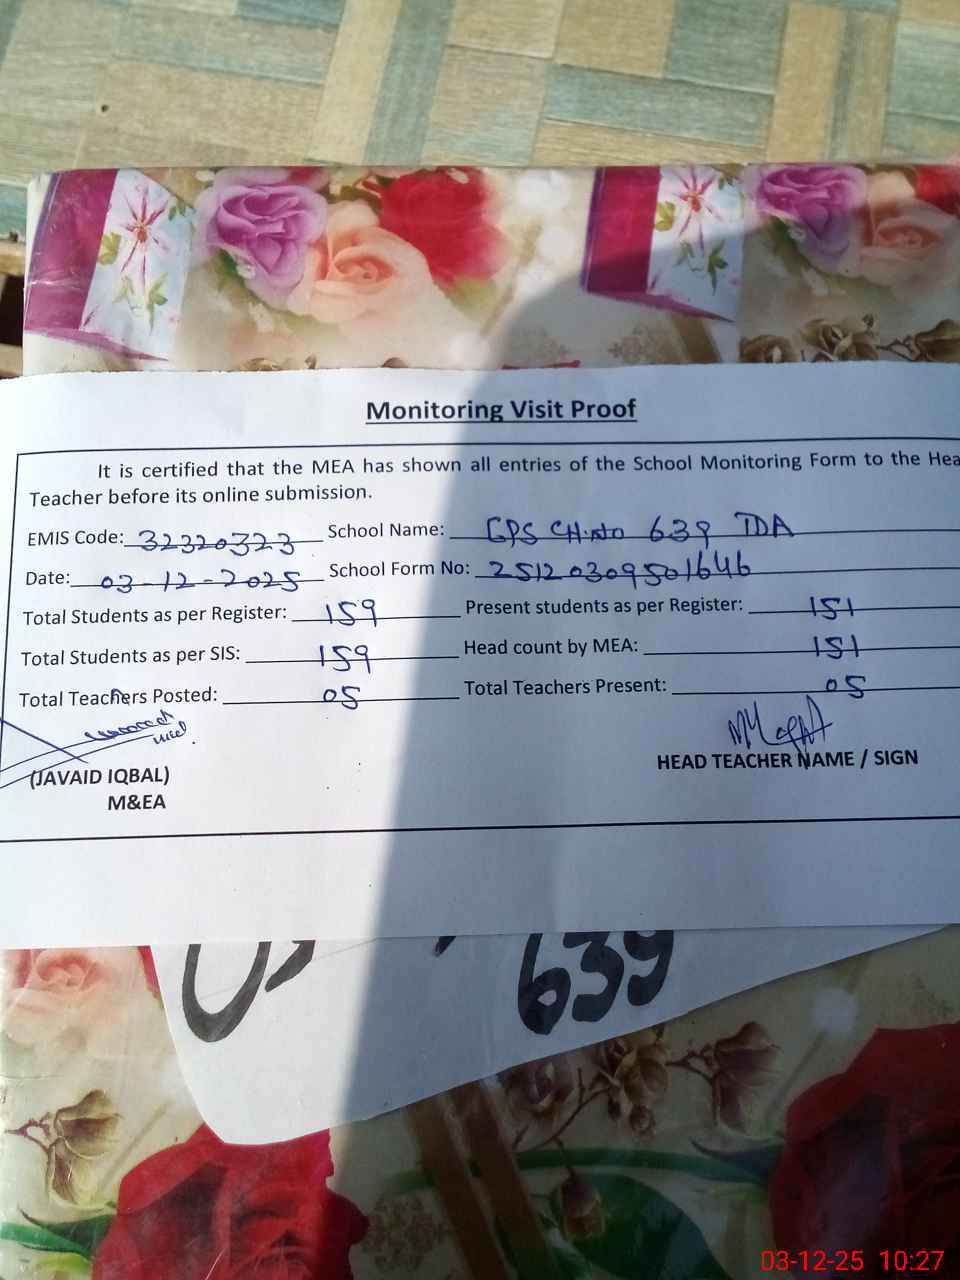 Monitoring Visit Proof
It is certified that the MEA has shown all entries of the School Monitoring Form to the Hea
Teacher before its online submission.
EMIS Code: 32320323 School Name: GPS CH.No 639 TDA
Date: 03-12-2025 School Form No: 25120309501646
Total Students as per Register: 159 Present students as per Register: 151
Total Students as per SIS: 159 Head count by MEA: 151
Total Teachers Posted: 05 Total Teachers Present: 05
(JAVAID IQBAL) HEAD TEACHER NAME / SIGN
M&EA
639
03-12-25 10:27